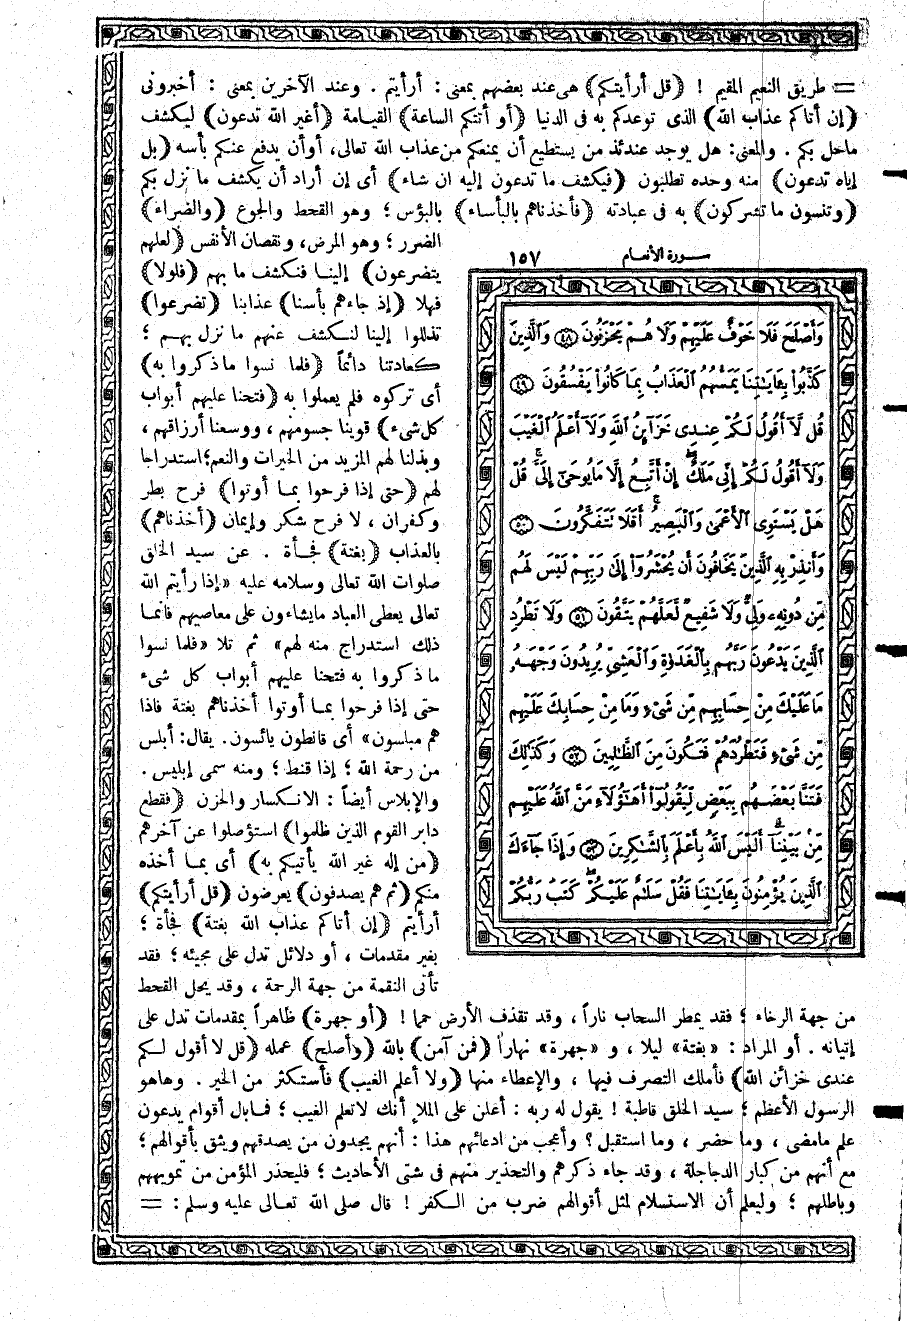 = طريق النعيم المقيم ! (قل أرأيتكم) هى عند بعضهم بمعنى : أرأيتم . وعند الآخرين بمعنى : أخبرونى
(إن أتاكم عذاب الله) الذى توعدكم به فى الدنيا (أو أتتكم الساعة) القيامة (أغير الله تدعون) ليكشف
ماحل بكم . والمعنى: هل يوجد عندئذ من يستطيع أن يمنعكم من عذاب الله تعالى، أوأن يدفع عنكم بأسه (بل
إياه تدعون) منه وحده تطلبون (فيكشف ما تدعون إليه ان شاء) أى إن أراد أن يكشف ما نزل بكم
(وتنسون ما تشركون) به فى عبادته (فأخذناهم بالبأساء) بالبؤس ؛ وهو القحط والجوع (والضراء)
الضرر ؛ وهو المرض، ونقصان الأنفس (لعلهم
يتضرعون) إلينا فنكشف ما بهم (فلولا)
فهلا (إذ جاءهم بأسنا) عذابنا (تضرعوا)
تذللوا إلينا لنكشف عنهم ما نزل بهم ؛
كعادتنا دائماً (فلما نسوا ما ذكروا به)
أى تركوه فلم يعملوا به (فتحنا عليهم أبواب
كل شىء) قوينا جسومهم ، ووسعنا أرزاقهم ،
وبذلنا لهم المزيد من الخيرات والنعم؛ استدراجا
لهم (حتى إذا فرحوا بما أوتوا) فرح بطر
وكفران ، لا فرح شكر وإيمان (أخذناهم)
بالعذاب (بغتة) فجأة . عن سيد الخلق
صلوات الله تعالى وسلامه عليه «إذا رأيتم الله
تعالى يعطى العباد مايشاءون على معاصيهم فانما
ذلك استدراج منه لهم» ثم تلا «فلما نسوا
ما ذكروا به فتحنا عليهم أبواب كل شىء
حتى إذا فرحوا بما أوتوا أخذناهم بغتة فاذا
هم مبلسون» أى قانطون يائسون. يقال: أبلس
من رحمة الله ؛ إذا قنط ؛ ومنه سمى إبليس.
والإبلاس أيضاً : الانكسار والحزن (فقطع
دابر القوم الذين ظلموا) استؤصلوا عن آخرهم
(من إله غير الله يأتيكم به) أى بما أخذه
منكم (ثم هم يصدفون) يعرضون (قل أرأيتكم)
أرأيتم (إن أتاكم عذاب الله بغتة) فجأة ؛
بغير مقدمات ، أو دلائل تدل على مجيئه ؛ فقد
تأتى النقمة من جهة الرحمة ، وقد يحل القحط
سورة الأنعام ١٥٧
وَأَصْلَحَ فَلَا خَوْفٌ عَلَيْهِمْ وَلَا هُمْ يَحْزَنُونَ ٤٨ وَالَّذِينَ
كَذَّبُوا۟ بِـَٔايَـٰتِنَا يَمَسُّهُمُ الْعَذَابُ بِمَا كَانُوا۟ يَفْسُقُونَ ٤٩
قُل لَّآ أَقُولُ لَكُمْ عِندِى خَزَآئِنُ اللَّهِ وَلَآ أَعْلَمُ الْغَيْبَ
وَلَآ أَقُولُ لَكُمْ إِنِّى مَلَكٌ إِنْ أَتَّبِعُ إِلَّا مَا يُوحَىٰٓ إِلَىَّ قُلْ
هَلْ يَسْتَوِى الْأَعْمَىٰ وَالْبَصِيرُ أَفَلَا تَتَفَكَّرُونَ ٥٠
وَأَنذِرْ بِهِ الَّذِينَ يَخَافُونَ أَن يُحْشَرُوٓا۟ إِلَىٰ رَبِّهِمْ لَيْسَ لَهُم
مِّن دُونِهِۦ وَلِىٌّ وَلَا شَفِيعٌ لَّعَلَّهُمْ يَتَّقُونَ ٥١ وَلَا تَطْرُدِ
الَّذِينَ يَدْعُونَ رَبَّهُم بِالْغَدَوٰةِ وَالْعَشِىِّ يُرِيدُونَ وَجْهَهُۥ
مَا عَلَيْكَ مِنْ حِسَابِهِم مِّن شَىْءٍ وَمَا مِنْ حِسَابِكَ عَلَيْهِم
مِّن شَىْءٍ فَتَطْرُدَهُمْ فَتَكُونَ مِنَ الظَّـٰلِمِينَ ٥٢ وَكَذَٰلِكَ
فَتَنَّا بَعْضَهُم بِبَعْضٍ لِّيَقُولُوٓا۟ أَهَـٰٓؤُلَآءِ مَنَّ اللَّهُ عَلَيْهِم
مِّنۢ بَيْنِنَآ أَلَيْسَ اللَّهُ بِأَعْلَمَ بِالشَّـٰكِرِينَ ٥٣ وَإِذَا جَآءَكَ
الَّذِينَ يُؤْمِنُونَ بِـَٔايَـٰتِنَا فَقُلْ سَلَـٰمٌ عَلَيْكُمْ كَتَبَ رَبُّكُمْ
من جهة الرخاء ؛ فقد يمطر السحاب ناراً ، وقد تقذف الأرض حمما ! (أو جهرة) ظاهراً بمقدمات تدل على
إتيانه . أو المراد : «بغتة» ليلا ، و «جهرة» نهاراً (فمن آمن) بالله (وأصلح) عمله (قل لا أقول لكم
عندى خزائن الله) فأملك التصرف فيها ، والإعطاء منها (ولا أعلم الغيب) فأستكثر من الخير . وهاهو
الرسول الأعظم ؛ سيد الخلق قاطبة ! يقول له ربه : أعلن على الملإ أنك لاتعلم الغيب ؛ فما بال أقوام يدعون
علم مامضى ، وما حضر ، وما استقبل ؟ وأعجب من ادعائهم هذا : أنهم يجدون من يصدقهم ويثق بأقوالهم ؛
مع أنهم من كبار الدجاجلة ، وقد جاء ذكرهم والتحذير منهم فى شتى الأحاديث ؛ فليحذر المؤمن من تمويههم
وباطلهم ؛ وليعلم أن الاستسلام لمثل أقوالهم ضرب من الكفر ! قال صلى الله تعالى عليه وسلم : =